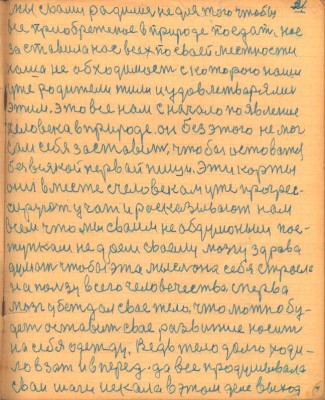 21
мы сваими радилися не для того чтобы
все приобретеное в природе поедать. нас
заставила нас всех по сваей местности
наша не обходимост с которою наши
уже родители жили и удовлетварялис
этим. это все нам с начало появление
человека в природе. он без этого не мог
сам себя заставить, чтобы остоватся
без всякой первай пищи. Эти корты
они вместе с человекам уже прогрес-
сируют учат и расказывают нам
всем что мы сваими не обдуманыими пос-
тупкам не даем сваему мозгу здрава
думат чтобы эта мысл она себя строела
на ползу всего человечества сперва
мозг убеждал свае тело, что можно бу-
дет оставит свае развитие носит
на себя одежду. Ведь тело долго ходи-
ло взат и вперед. да все продумывала
сваи шаги искала в этом деле выход